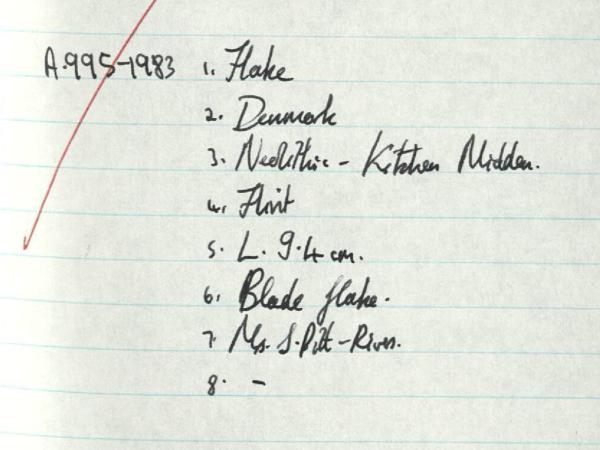 A.995-1983 1. Flake
2. Denmark
3. Neolithic - Kitchen Midden.
4. Flint
5. L. 9.4 cm.
6. Blade flake.
7. Ms. S. Pitt-Rivers.
8. -